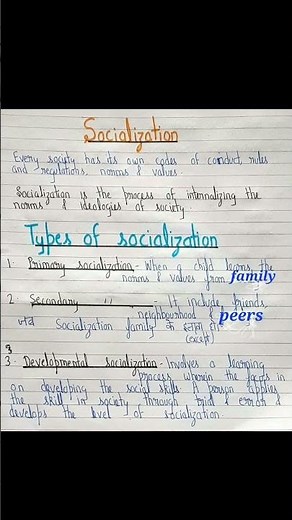 Socialization
Every society has its own codes of conduct, rules
and regulations, norms & values.
Socialization is the process of internalizing the
norms & ideologies of society
Types of socialization
1. Primary socialization - When a child learns the
norms & values from family
2. Secondary " - It include friends,
neighbourhood & peers
जब Socialization family के इलावा हो
(except)
3
3. Developmental socialization - Involves a learning
process wherein the focus in
on developing the social skills. A person applies
the skill in society through trial & error &
develops the level of socialization.